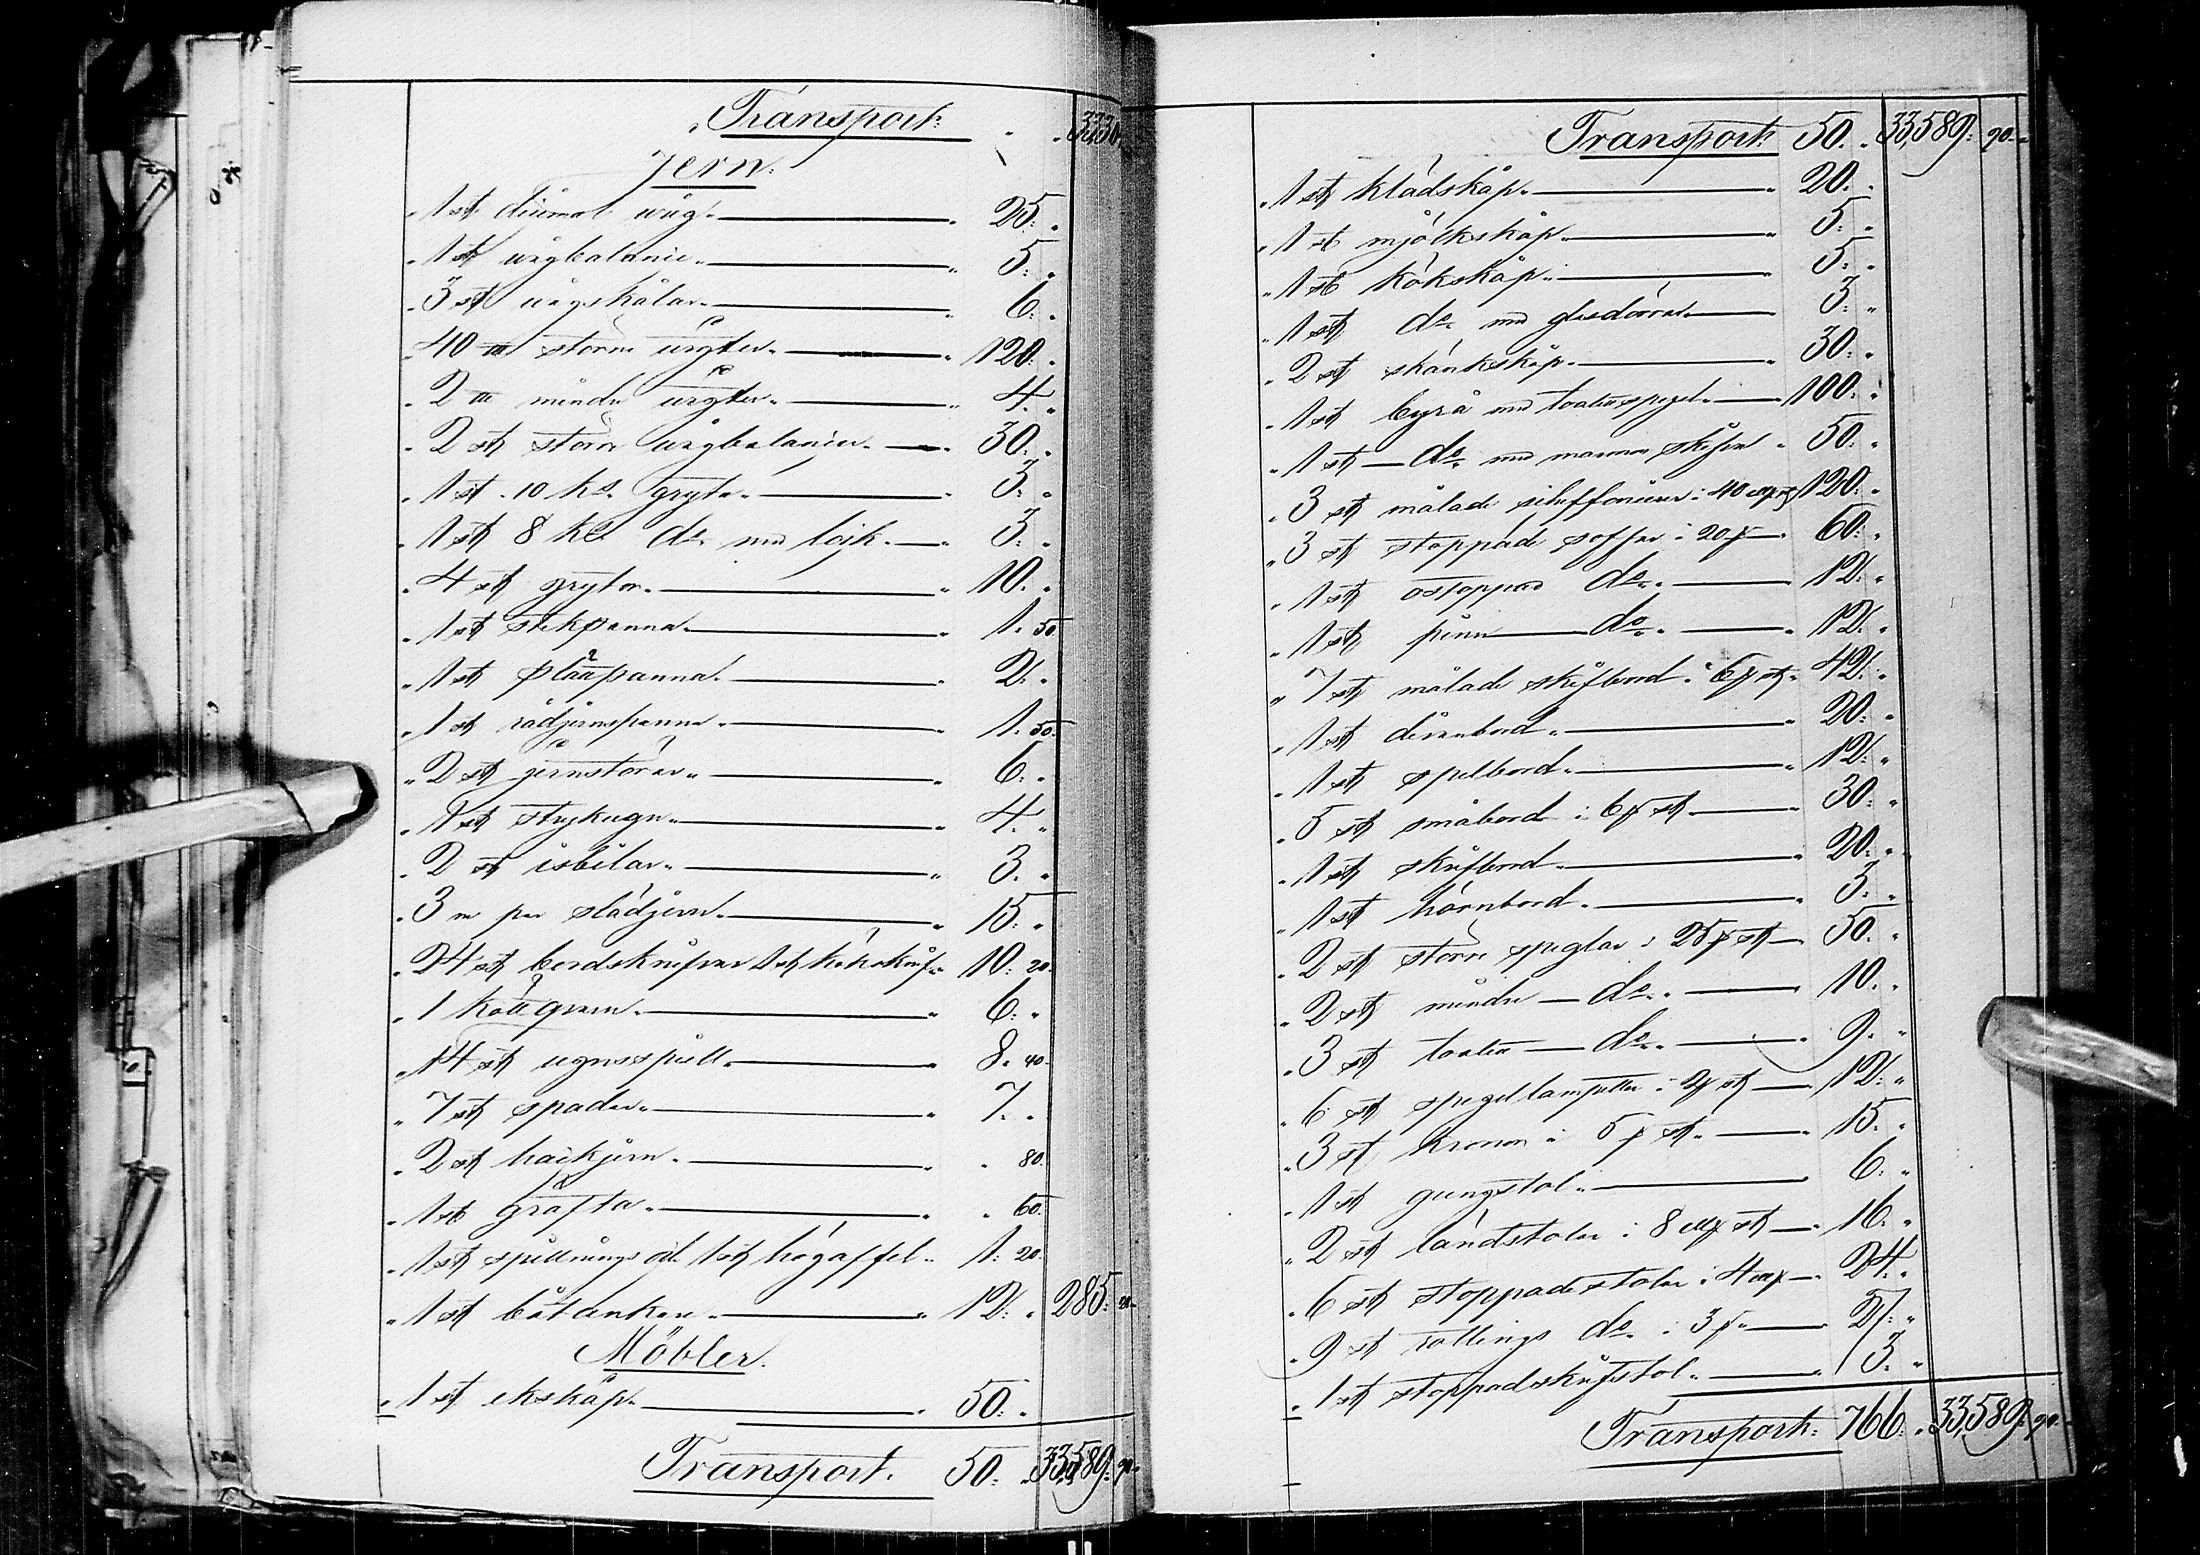 Transport: 33,30
Jern.
1 st desimal våg. 25:
1 st vågbalanie. 5:
3 st vågskålar. 6:
40 större vigter. 120:
2 mindre vigter. 4:
2 st större vågbalanier. 30:
1 st 10 k:s gryta. 3:
1 st 8 k:s do med lock. 3:
4 st grytor. 10:
1 st stekpanna. 1: 50
1 st plåtpanna. 2:
1 st rådjernspanna. 1: 50
2 st jernstörar. 6:
1 st strykugn. 4:
2 st isbilar. 3:
3 par slädjern. 15:
24 st bordsknifvar 1 st köksknif. 10: 20
1 köttqvarn. 6:
14 st ugnsspjell. 8: 40
7 st spadar. 7:
2 st hackjern. 80
1 st gräfta. 60
1 st spillnings och 1 st högaffel. 1: 20
1 st båtankare. 12: 285: 20
Möbler.
1 st ekskåp. 50:
Transport. 50: 33,589: 90
Transport: 50: 33,589: 90
1 st klädskåp. 20:
1 st mjölkskåp. 5:
1 st kökskåp. 5:
1 st do med glasdörrar. 3:
2 st skänkskåp. 30:
1 st byrå med toalettspegel. 100:
1 st do med marmor skifva 50:
3 st målade schiffonierer à 40 120:
3 st stoppade soffor à 20 60:
1 st ostoppad do. 12:
1 st pinn do. 12:
7 st målade skifbord à 6 st. 42:
1 st divanbord. 20:
1 st spelbord. 12:
5 st småbord à 6 st 30:
1 st skrifbord. 20:
1 st hörnbord. 3:
2 st större speglar à 25 st 50:
2 st mindre do. 10:
3 st toalett do. 9:
6 st spegellampetter à 2 st 12:
3 st kronor à 5 st. 15:
1 st gungstol. 6:
2 st ländstolar à 8 st 16:
6 st stoppade stolar à 4 24:
9 st rottings do. à 3 27:
1 st stoppad skrifstol. 3:
Transport: 766: 33,589: 90